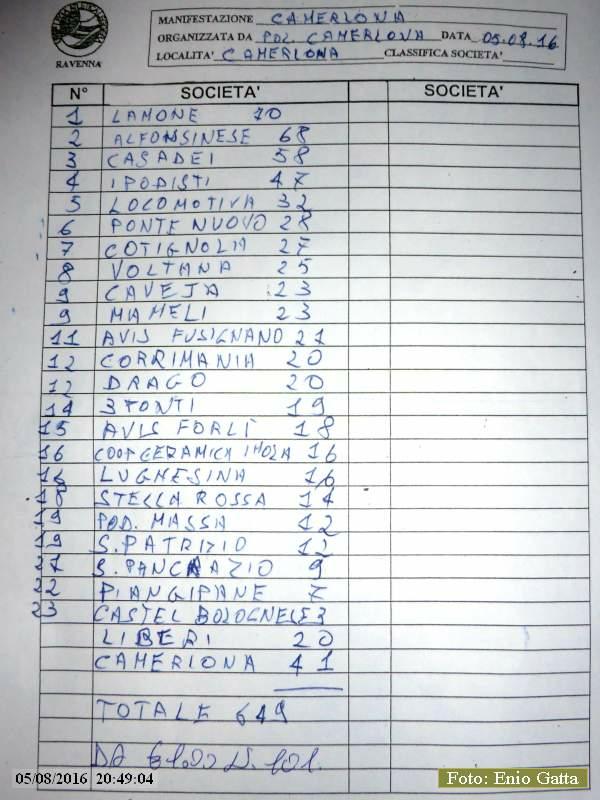 RAVENNA
MANIFESTAZIONE CAMERLONA
ORGANIZZATA DA POL. CAMERLONA DATA 05.08.16
LOCALITA' CAMERLONA CLASSIFICA SOCIETA'
N° SOCIETA' SOCIETA'
1 LAMONE 70
2 ALFONSINESE 68
3 CASADEI 58
4 IPODISTI 47
5 LOCOMOTIVA 32
6 PONTE NUOVO 28
7 COTIGNOLA 27
8 VOLTANA 25
9 CAVEJA 23
9 MAMELI 23
11 AVIS FUSIGNANO 21
12 CORRIMANIA 20
12 DRAGO 20
14 3 FONTI 19
15 AVIS FORLÌ 18
16 COOP CERAMICA IMOLA 16
16 LUGHESINA 16
18 STELLA ROSSA 14
19 POD. MASSA 12
19 S. PATRIZIO 12
21 S. PANCRAZIO 9
22 PIANGIPANE 7
23 CASTEL BOLOGNESE 3
LIBERI 20
CAMERLONA 41
TOTALE 649
DA
05/08/2016 20:49:04
Foto: Enio Gatta